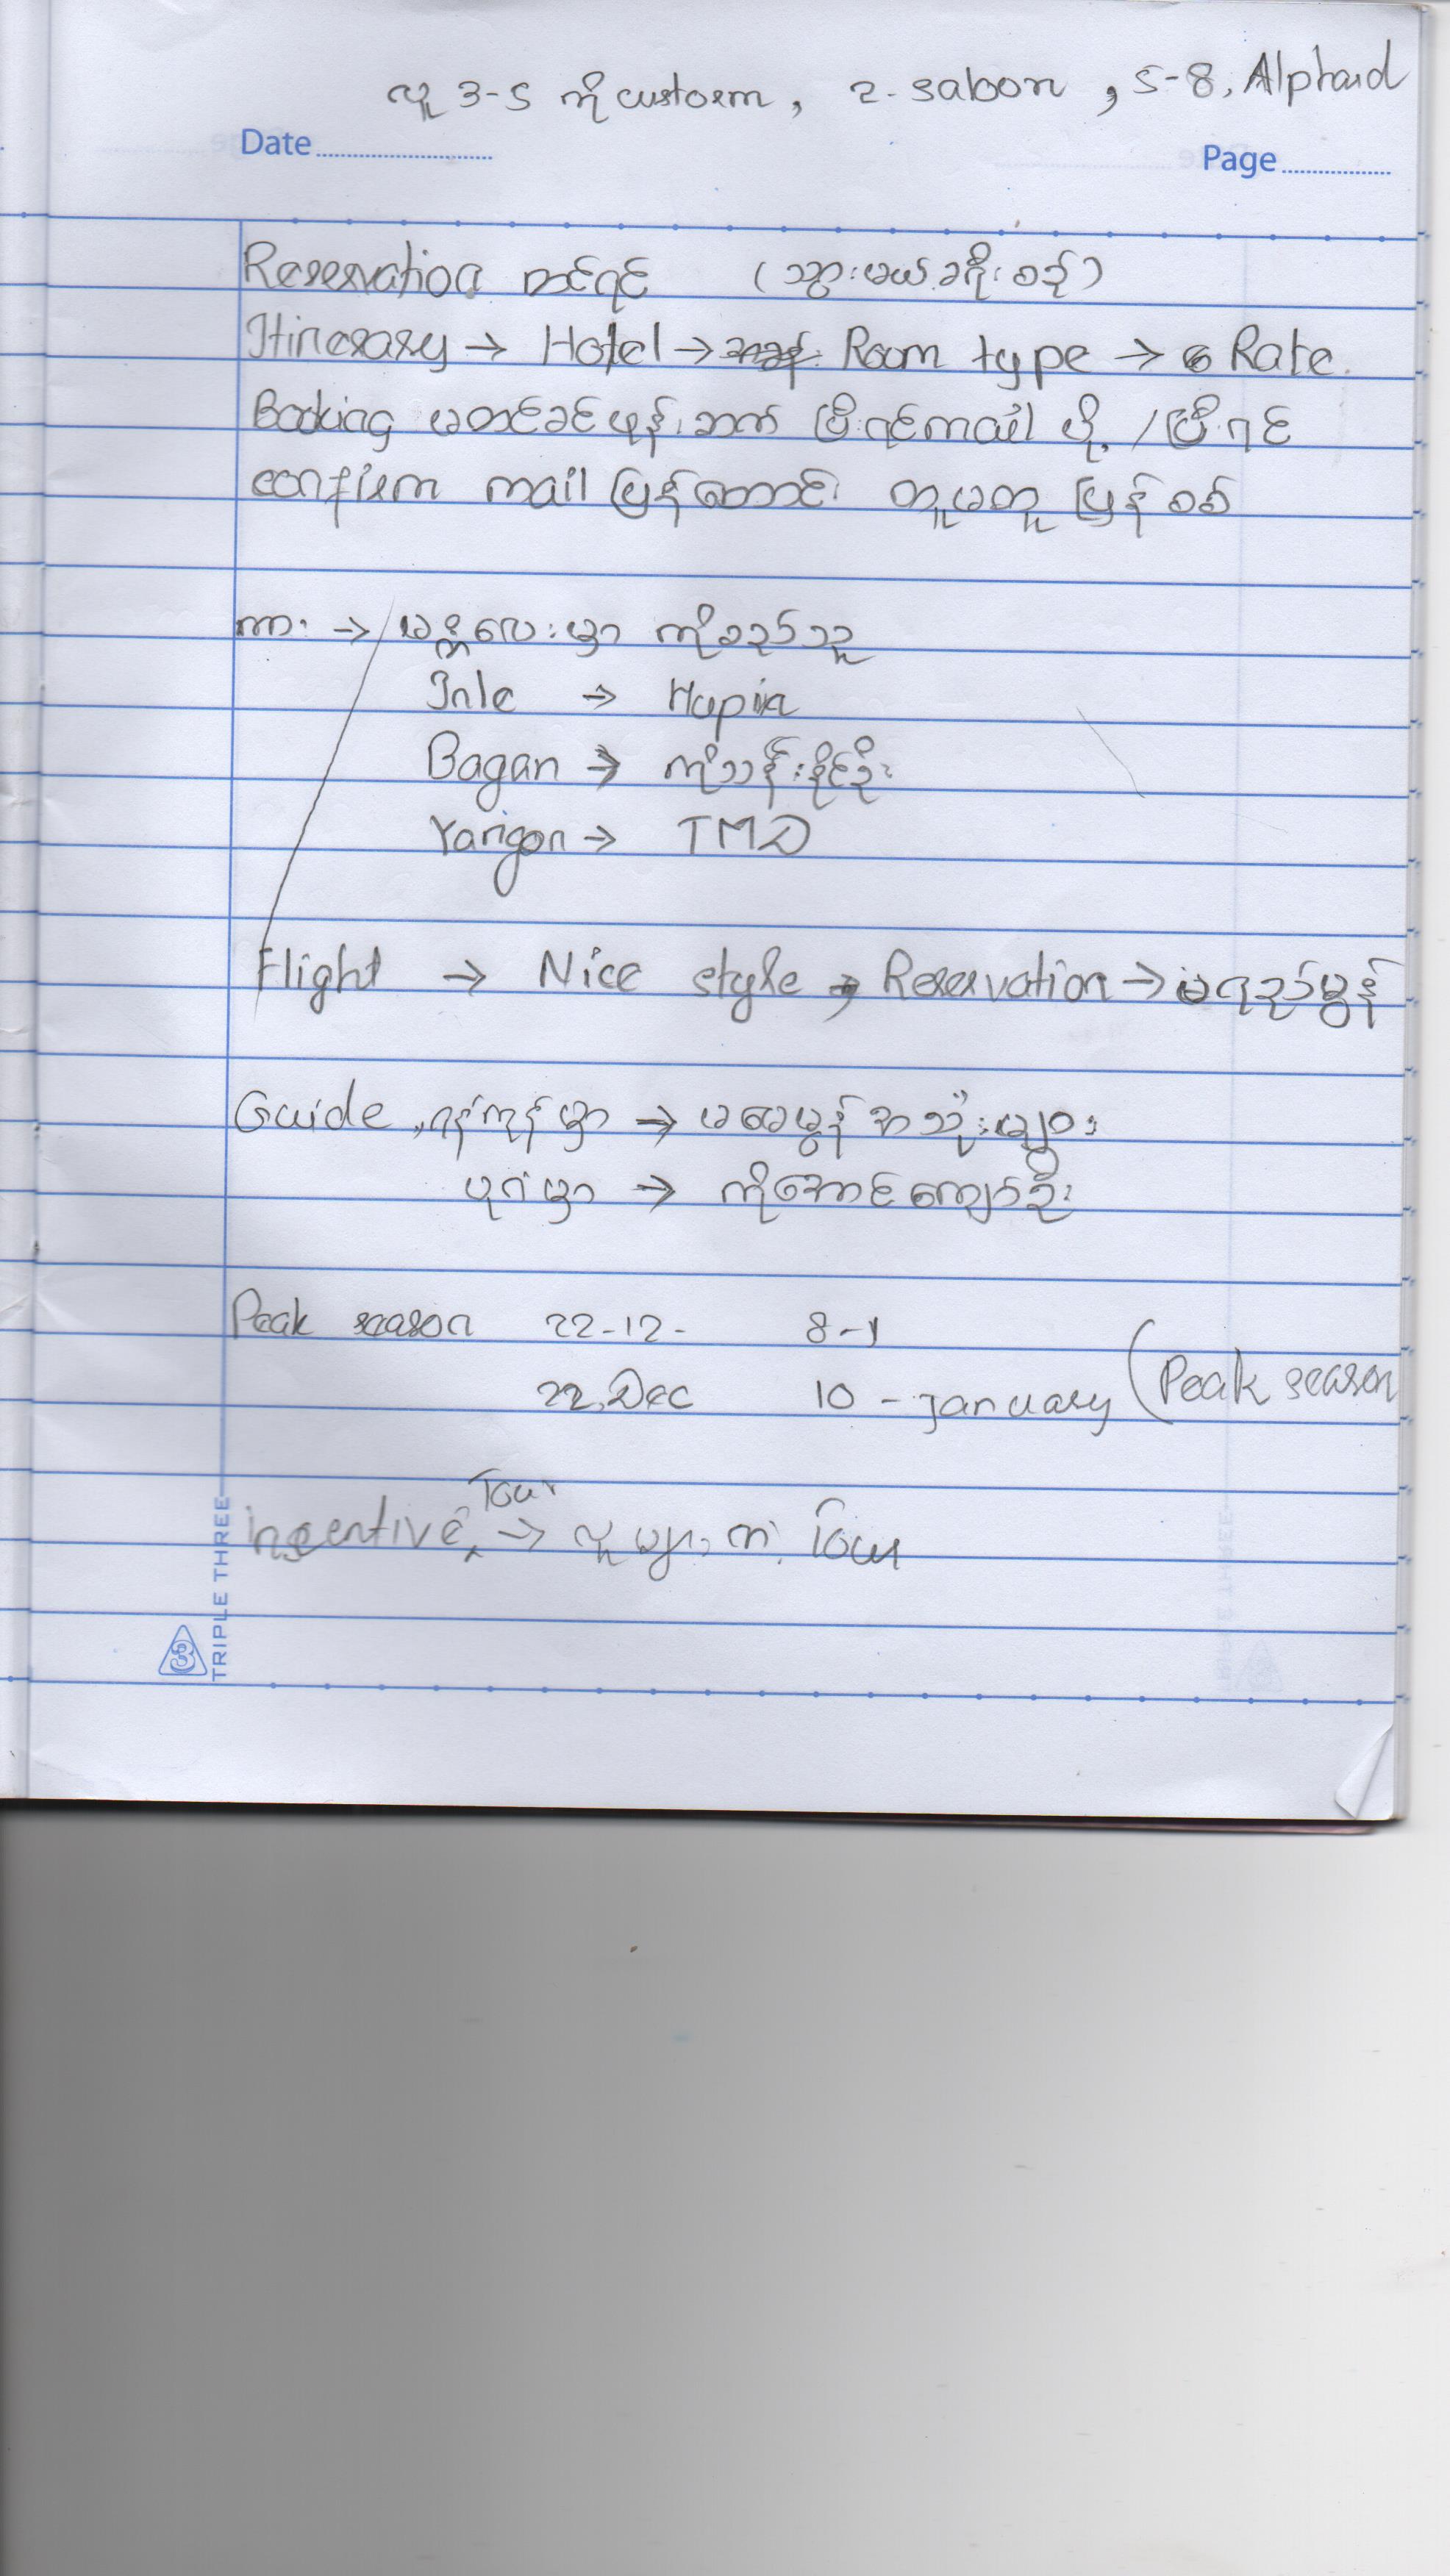 လူ 3-5 ကို custorm, 2-sabon, 5-8, Alphard
Date Page
Reservation တင်ရင် (သွားမယ့်ခရီးစဉ်)
Itinerary → Hotel → Room type → Rate.
Booking မတင်ခင်ဖုန်းဆက် ပြီးရင်mail ပို့ /ပြီးရင်
confirm mail ပြန်တောင်း တူမတူ ပြန်စစ်
ကား → မန္တလေးမှာ ကိုစည်သူ
Inle → Hupin
Bagan → ကိုသန်းနိုင်ဦး
Yangon → TMD
Flight → Nice style → Reservation → မရည်မွန်
Guide ရန်ကုန်မှာ → မမေမွန် အသုံးများ
ပုဂံမှာ → ကိုအောင်ကျော်ဦး
Peak season 22-12- 8-1
22.Dec 10 - january (Peak season
Tour
insentive → လူများတဲ့ Tour
TRIPLE THREE
3